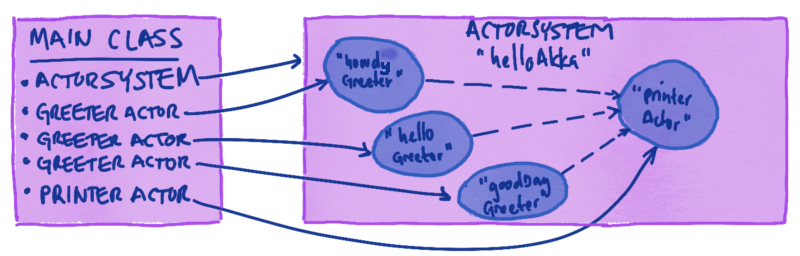 MAIN CLASS
• ACTORSYSTEM
• GREETER ACTOR
• GREETER ACTOR
• GREETER ACTOR
• PRINTER ACTOR
ACTORSYSTEM
"helloAkka"
"howdy
Greeter"
"hello
Greeter"
"goodDay
Greeter"
"printer
Actor"